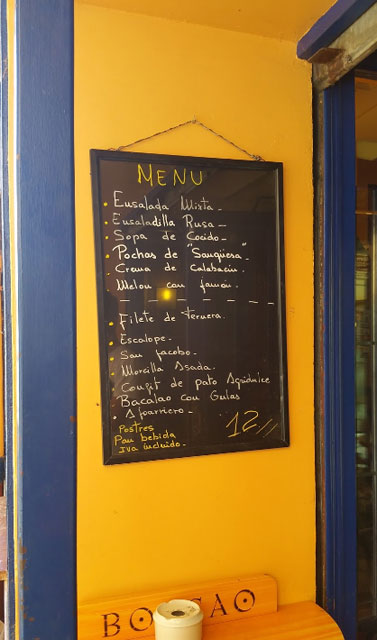 MENU
Ensalada Mixta
Ensaladilla Rusa
Sopa de Cocido
Pochas de "Sangüesa"
Crema de Calabacin
Melon con jamon
Filete de Ternera
Escalope
San Jacobo
Morcilla Asada
Confit de pato Agridulce
Bacalao con Gulas
Ajoarriero
Postres
Pan bebida
IVA incluido
12